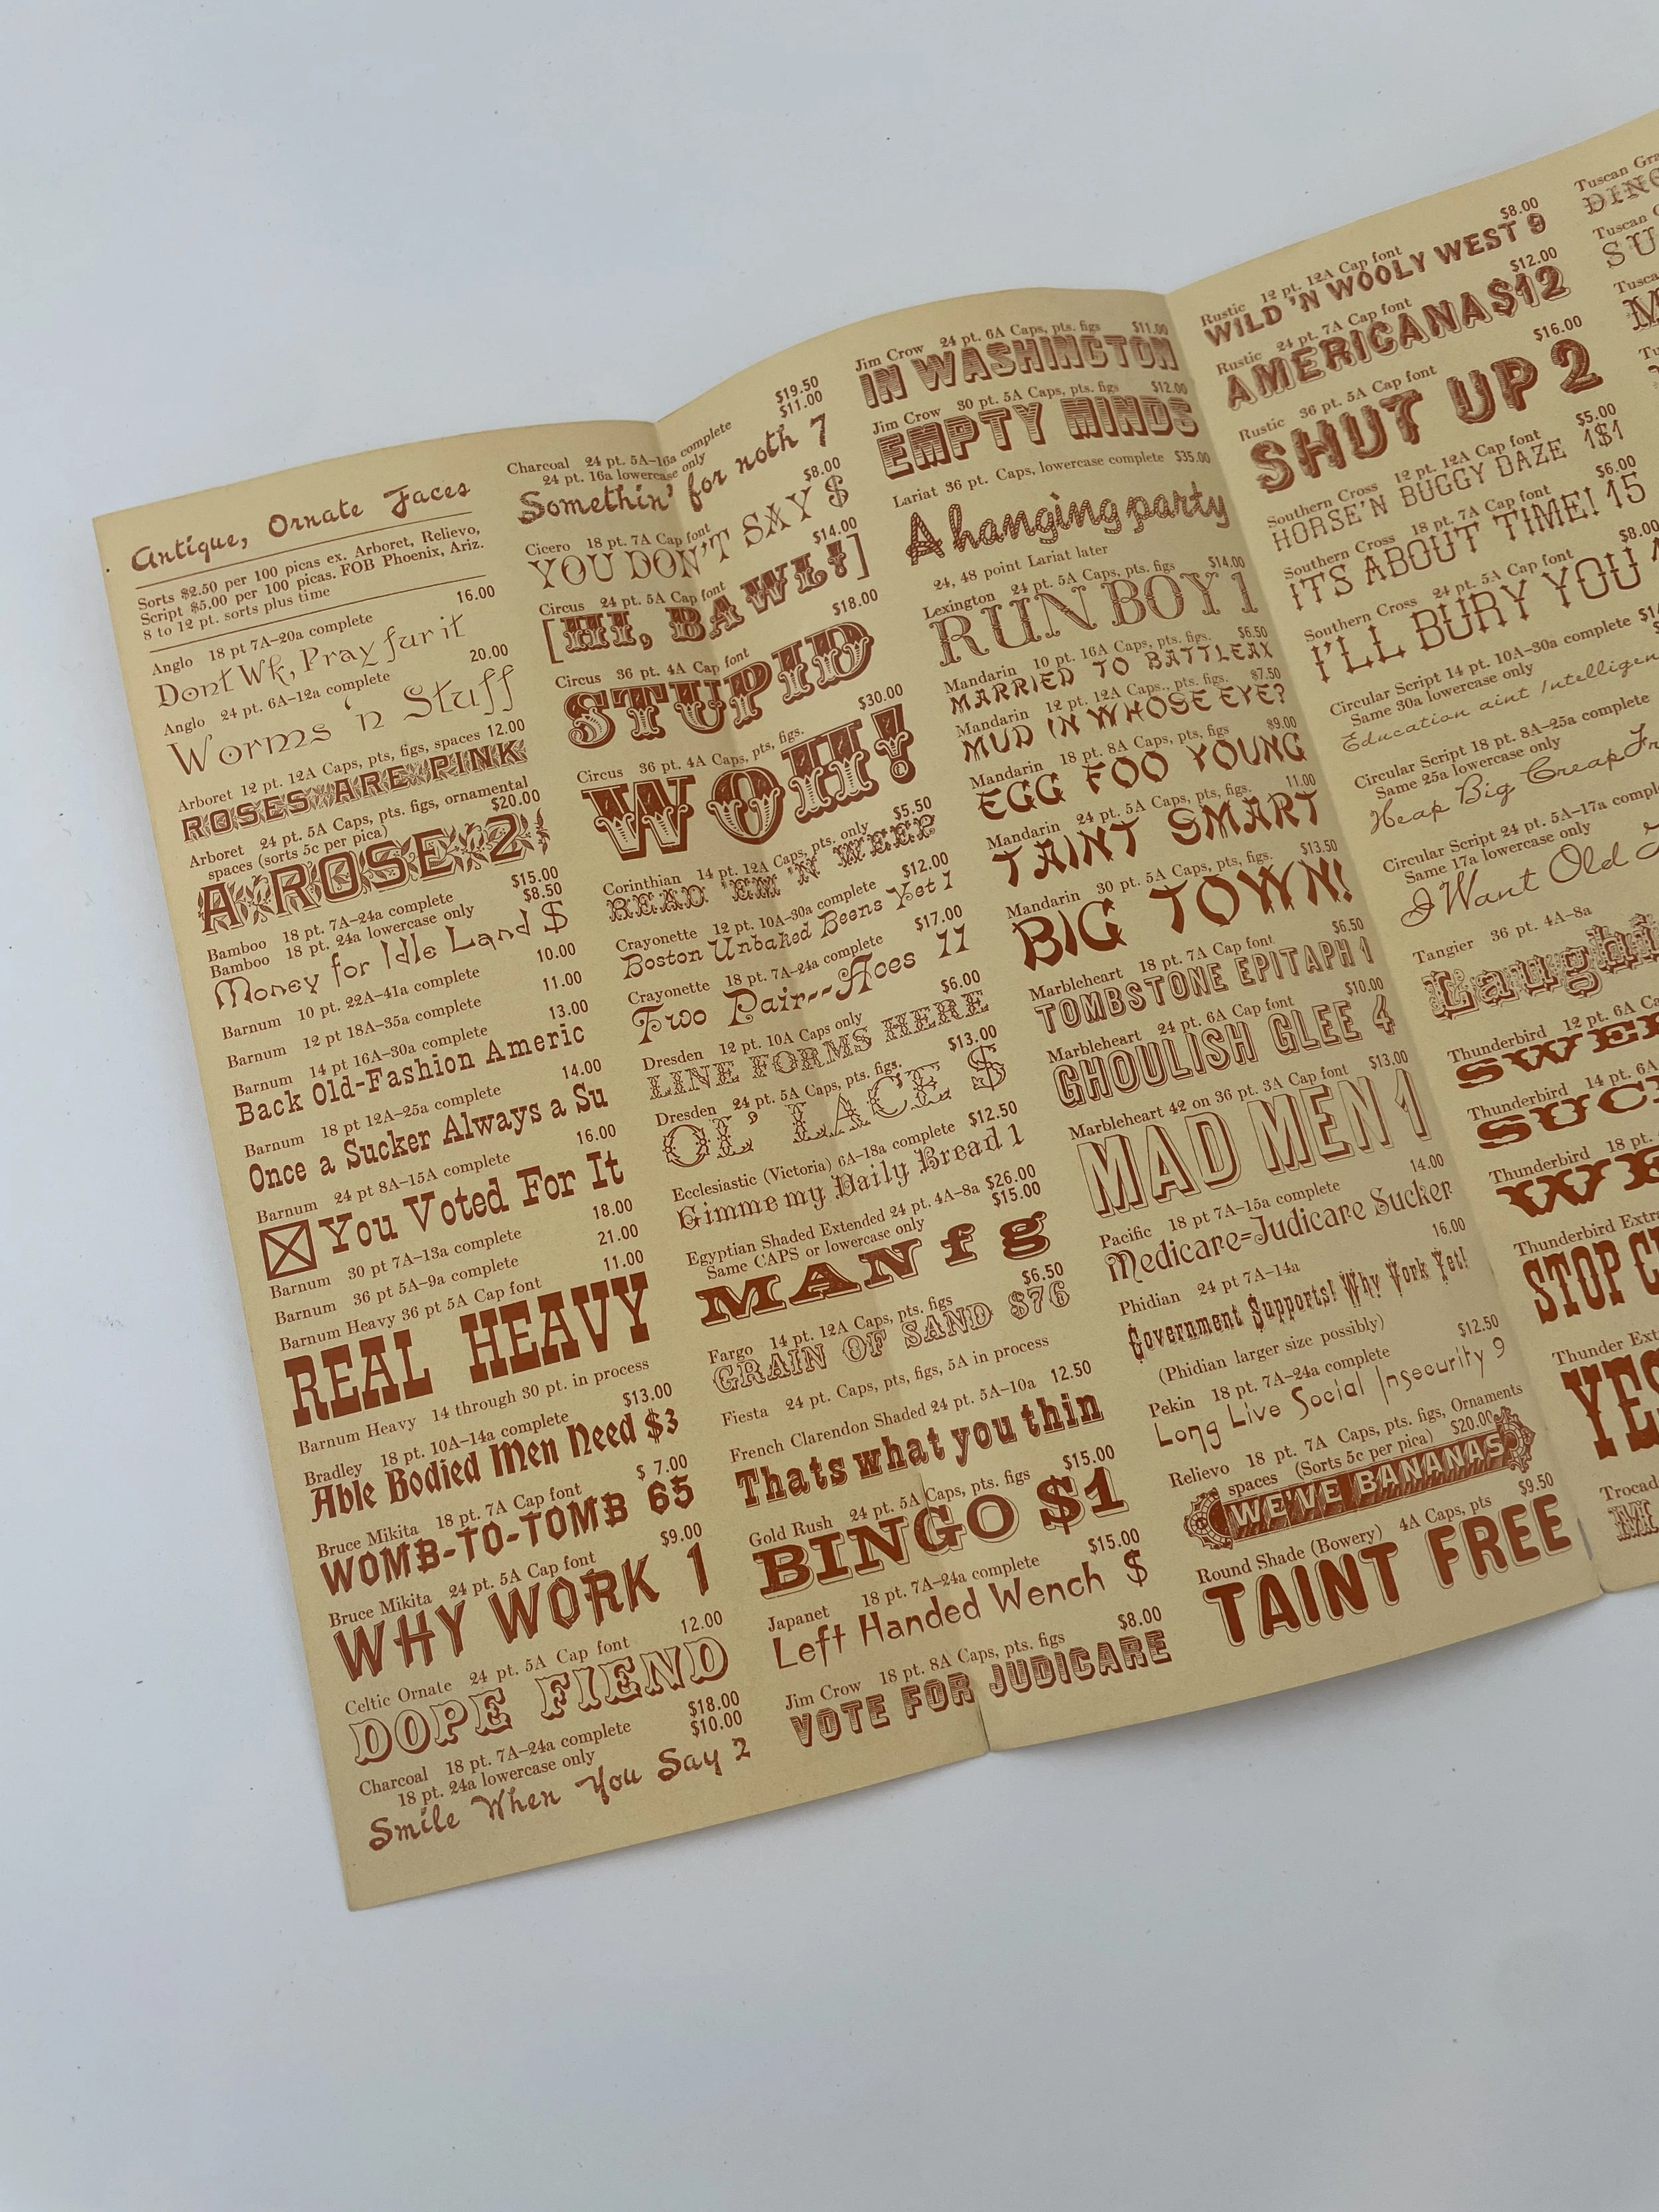 Antique, Ornate Faces
Sorts $2.50 per 100 picas ex. Arboret, Relievo,
Script $5.00 per 100 picas. FOB Phoenix, Ariz.
8 to 12 pt. sorts plus time
Anglo 18 pt 7A–20a complete 16.00
Dont Wk, Pray fur it
Anglo 24 pt. 6A–12a complete 20.00
Worms 'n Stuff
Arboret 12 pt. 12A Caps, pts, figs, spaces 12.00
ROSES ARE PINK
Arboret 24 pt. 5A Caps, pts. figs, ornamental
spaces (sorts 5c per pica) $20.00
A ROSE 2
Bamboo 18 pt. 7A–24a complete $15.00
Bamboo 18 pt. 24a lowercase only $8.50
Money for Idle Land $
Barnum 10 pt. 22A–41a complete 10.00
Barnum 12 pt 18A–35a complete 11.00
Barnum 14 pt 16A–30a complete 13.00
Back Old-Fashion Americ
Barnum 18 pt 12A–25a complete 14.00
Once a Sucker Always a Su
Barnum 24 pt 8A–15A complete 16.00
You Voted For It
Barnum 30 pt 7A–13a complete 18.00
Barnum 36 pt 5A–9a complete 21.00
Barnum Heavy 36 pt 5A Cap font 11.00
REAL HEAVY
Barnum Heavy 14 through 30 pt. in process
Bradley 18 pt. 10A–14a complete $13.00
Able Bodied Men Need $3
Bruce Mikita 18 pt. 7A Cap font $ 7.00
WOMB-TO-TOMB 65
Bruce Mikita 24 pt. 5A Cap font $9.00
WHY WORK 1
Celtic Ornate 24 pt. 5A Cap font 12.00
DOPE FIEND
Charcoal 18 pt. 7A–24a complete $18.00
18 pt. 24a lowercase only $10.00
Smile When You Say 2
Charcoal 24 pt. 5A–16a complete $19.50
24 pt. 16a lowercase only $11.00
Somethin' for noth 7
Cicero 18 pt. 7A Cap font $8.00
YOU DON'T SAY $
Circus 24 pt. 5A Cap font $14.00
[HI, BAWL!]
Circus 36 pt. 4A Cap font $18.00
STUPID
Circus 36 pt. 4A Caps, pts, figs. $30.00
WOH!
Corinthian 14 pt. 12A Caps, pts. only $5.50
READ 'EM 'N WEEP
Crayonette 12 pt. 10A–30a complete $12.00
Boston Unbaked Beens Yet 1
Crayonette 18 pt. 7A–24a complete $17.00
Two Pair--Aces 11
Dresden 12 pt. 10A Caps only $6.00
LINE FORMS HERE
Dresden 24 pt. 5A Caps, pts. figs. $13.00
OL' LACE $
Ecclesiastic (Victoria) 6A–18a complete $12.50
Gimme my Daily Bread 1
Egyptian Shaded Extended 24 pt. 4A–8a $26.00
Same CAPS or lowercase only $15.00
MAN f g
Fargo 14 pt. 12A Caps, pts. figs $6.50
GRAIN OF SAND $76
Fiesta 24 pt. Caps, pts, figs, 5A in process
French Clarendon Shaded 24 pt. 5A–10a 12.50
Thats what you thin
Gold Rush 24 pt. 5A Caps, pts. figs $15.00
BINGO $1
Japanet 18 pt. 7A–24a complete $15.00
Left Handed Wench $
Jim Crow 18 pt. 8A Caps, pts. figs $8.00
VOTE FOR JUDICARE
Jim Crow 24 pt. 6A Caps, pts. figs $11.00
IN WASHINGTON
Jim Crow 30 pt. 5A Caps, pts. figs $12.00
EMPTY MINDS
Lariat 36 pt. Caps, lowercase complete $35.00
A hanging party
24, 48 point Lariat later
Lexington 24 pt. 5A Caps, pts. figs $14.00
RUN BOY 1
Mandarin 10 pt. 16A Caps, pts. figs. $6.50
MARRIED TO BATTLEAX
Mandarin 12 pt. 12A Caps., pts. figs. $7.50
MUD IN WHOSE EYE?
Mandarin 18 pt. 8A Caps, pts, figs $9.00
EGG FOO YOUNG
Mandarin 24 pt. 5A Caps, pts, figs. 11.00
TAINT SMART
Mandarin 30 pt. 5A Caps, pts, figs. $13.50
BIG TOWN!
Marbleheart 18 pt. 7A Cap font $6.50
TOMBSTONE EPITAPH 1
Marbleheart 24 pt. 6A Cap font $10.00
GHOULISH GLEE 4
Marbleheart 42 on 36 pt. 3A Cap font $13.00
MAD MEN 1
Pacific 18 pt 7A–15a complete 14.00
Medicare=Judicare Sucker
Phidian 24 pt 7A–14a 16.00
Government Supports! Why Work Yet!
(Phidian larger size possibly)
Pekin 18 pt. 7A–24a complete $12.50
Long Live Social Insecurity 9
Relievo 18 pt. 7A Caps, pts. figs, Ornaments
spaces (Sorts 5c per pica) $20.00
WE'VE BANANAS
Round Shade (Bowery) 4A Caps, pts $9.50
TAINT FREE
Rustic 12 pt. 12A Cap font $8.00
WILD 'N WOOLY WEST 9
Rustic 24 pt. 7A Cap font $12.00
AMERICANA $12
Rustic 36 pt. 5A Cap font $16.00
SHUT UP 2
Southern Cross 12 pt. 12A Cap font $5.00
HORSE'N BUGGY DAZE 1$1
Southern Cross 18 pt. 7A Cap font $6.00
ITS ABOUT TIME! 15
Southern Cross 24 pt. 5A Cap font $8.00
I'LL BURY YOU
Circular Script 14 pt. 10A–30a complete
Same 30a lowercase only
Education aint Intelligen
Circular Script 18 pt. 8A–25a complete
Same 25a lowercase only
Heap Big Creap Fr
Circular Script 24 pt. 5A–17a compl
Same 17a lowercase only
I Want Old
Tangier 36 pt. 4A–8a
Laughi
Thunderbird 12 pt. 6A Ca
SWE
Thunderbird 14 pt. 6A
SUC
Thunderbird 18 pt.
WE
Thunderbird Extra
STOP C
Thunder Ext
YES
Trocad
M
Tuscan Gra
DING
Tuscan
SU
Tusca
M